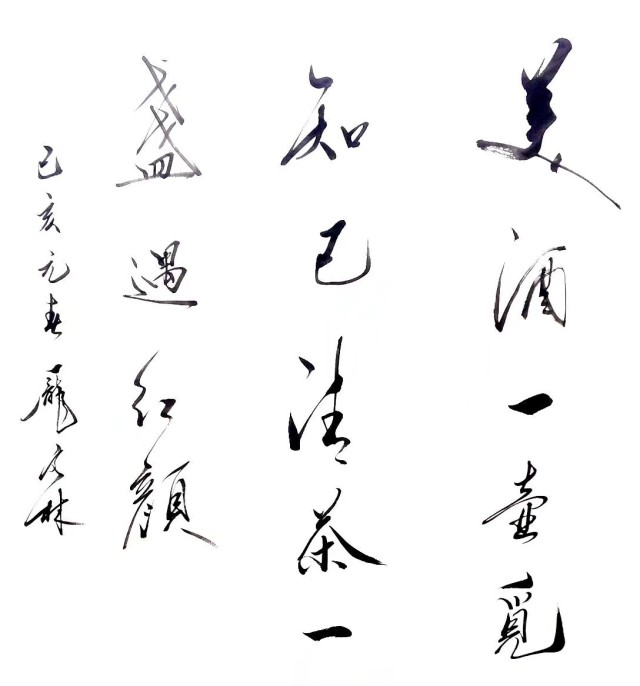 美酒一壶觅
知己清茶一
盏遇红颜
己亥元春龐文林